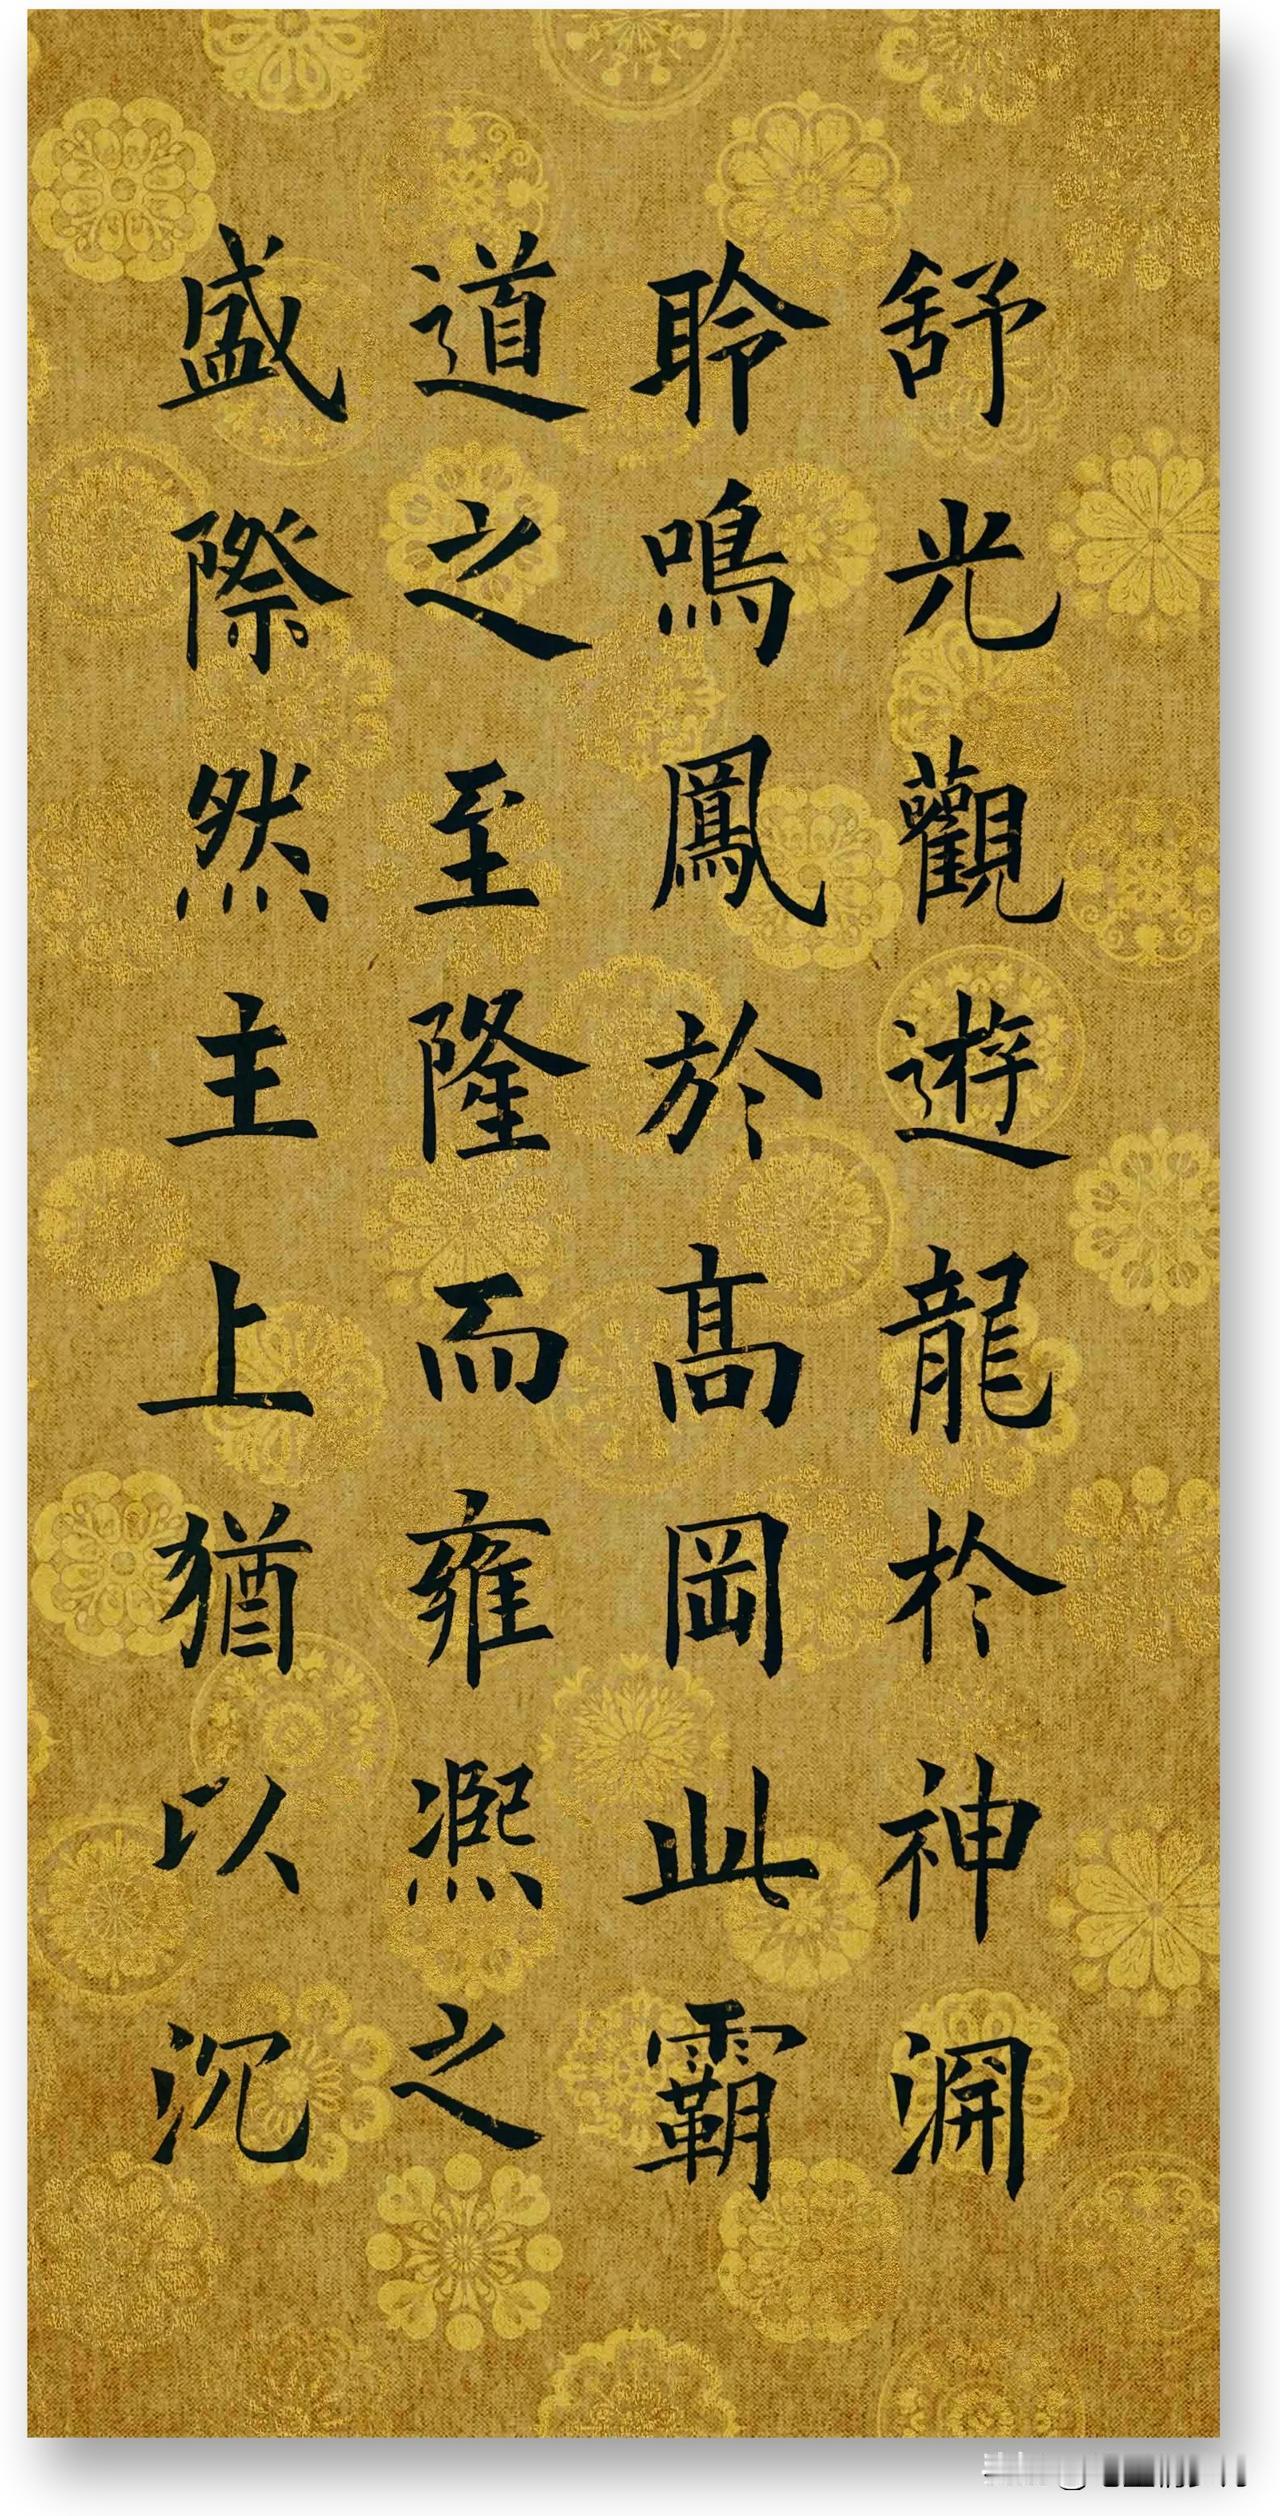 舒光觀遊龍於神淵
聆鳴鳳於高岡此霸
道之至隆而雍熙之
盛際然主上猶以沉